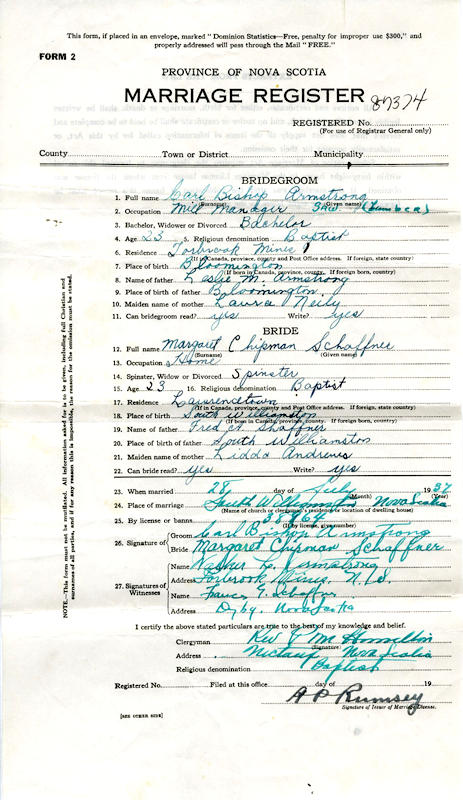 This form, if placed in an envelope, marked "Dominion Statistics—Free, penalty for improper use $300," and
properly addressed will pass through the Mail "FREE."
FORM 2
PROVINCE OF NOVA SCOTIA
MARRIAGE REGISTER 87374
REGISTERED No.
(For use of Registrar General only)
County Town or District Municipality
BRIDEGROOM
1. Full name Carl Bishop Armstrong
(Surname) (Given name)
2. Occupation Mill Manager Saw (Lumber)
3. Bachelor, Widower or Divorced Bachelor
4. Age 23 5. Religious denomination Baptist
6. Residence Torbrook Mines
(If Canada, province, county and Post Office address. If foreign, state country)
7. Place of birth Bloomington
(If born in Canada, province, county. If foreign born, country)
8. Name of father Leslie M. Armstrong
9. Place of birth of father Bloomington
10. Maiden name of mother Laura Neily
11. Can bridegroom read? yes Write? yes
BRIDE
12. Full name Margaret Chipman Schaffner
(Surname) (Given name)
13. Occupation Home
14. Spinster, Widow or Divorced Spinster
15. Age 23 16. Religious denomination Baptist
17. Residence Lawrencetown
(If in Canada, province, county and Post Office address. If foreign, state country)
18. Place of birth South Williamston
(If born in Canada, province, county. If foreign born, country)
19. Name of father Fred Shaffner
20. Place of birth of father South Williamston
21. Maiden name of mother Lidda Andrews
22. Can bride read? yes Write? yes
23. When married 28 day of July 1937
(Month) (Year)
24. Place of marriage South Williamston Nova Scotia
(Name of church or clergyman's residence or location of dwelling house)
25. By license or banns 38864
(If by license, give number)
26. Signature of Groom Carl Bishop Armstrong
Bride Margaret Chipman Schaffner
27. Signatures of Witnesses
Name Armstrong
Address Torbrook Mines, N.S.
Name Schaffner
Address Digby, Nova Scotia
I certify the above stated particulars are true to the best of my knowledge and belief.
Clergyman Rev
(Signature)
Address Nictaux Nova Scotia
Religious denomination Baptist
Registered No. Filed at this office day of 19
A P Rumsey
Signature of Issuer of Marriage License.
[SEE OTHER SIDE]
NOTE.—This form must not be mutilated. All information asked for is to be given, including full Christian and
surnames of all parties, and if for any reason this is impossible, the reason for the omission must be stated.